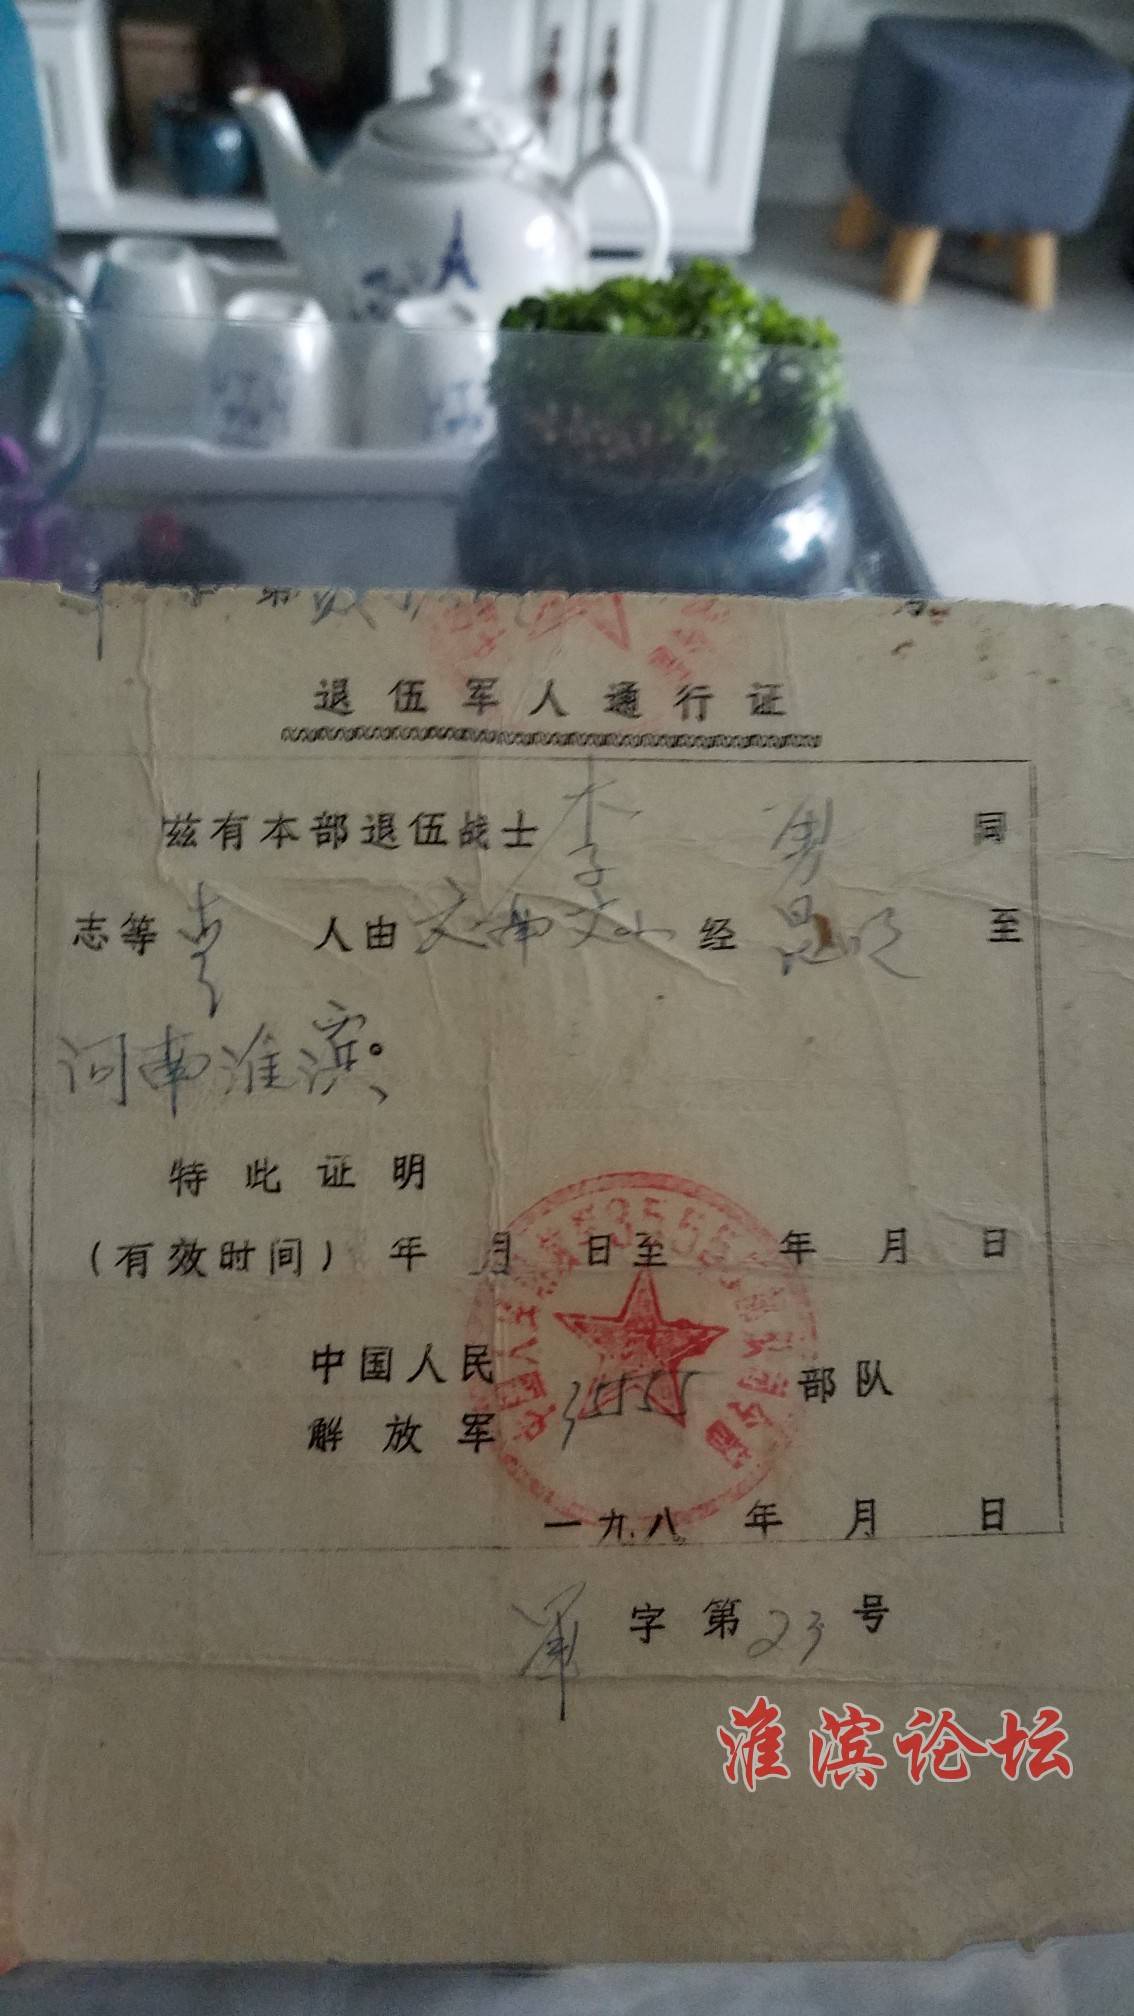 字第
退伍军人通行证
兹有本部退伍战士李勇同
志等壹人由文南文山经昆明至
河南淮滨。
特此证明
(有效时间) 年 月 日至 年 月 日
中国人民
解放军 35555 部队
一九八 年 月 日
军字第23号
淮滨论坛